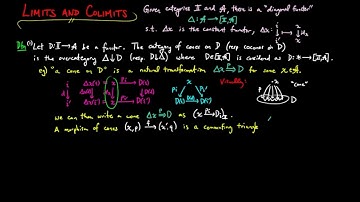 LIMITS AND COLIMITS
Given categories I and A, there is a "diagonal functor"
Δ: A → [I,A]
s.t. Δx is the constant functor, Δx: i ↦ x
Def(1) Let D: I → A be a functor. The category of cones on D (resp cocones on D)
is the overcategory Δ↓D (resp. D↓Δ) where D∈[I,A] is considered as D: * → [I,A].
eg) "a cone on D" is a natural transformation Δx → D for some x∈A.
Visually:
"cone"
We can then write a cone Δx → D as (x → Di)
A morphism of cones (x,p) → (x',q) is a commuting triangle